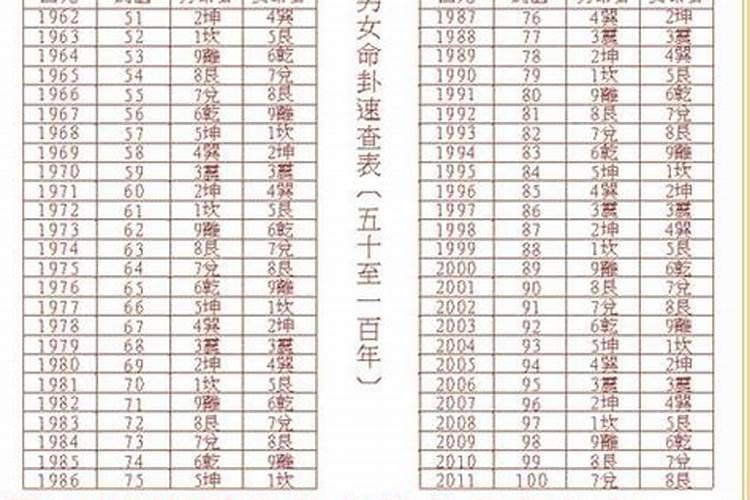 1962 51 2坤 4巽
1963 52 1坎 5艮
1964 53 9離 6乾
1965 54 8艮 7兌
1966 55 7兌 8艮
1967 56 6乾 9離
1968 57 5坤 1坎
1969 58 4巽 2坤
1970 59 3震 3震
1971 60 2坤 4巽
1972 61 1坎 5艮
1973 62 9離 6乾
1974 63 8艮 7兌
1975 64 7兌 8艮
1976 65 6乾 9離
1977 66 5坤 1坎
1978 67 4巽 2坤
1979 68 3震 3震
1980 69 2坤 4巽
1981 70 1坎 5艮
1982 71 9離 6乾
1983 72 8艮 7兌
1984 73 7兌 8艮
1985 74 6乾 9離
1986 75 5坤 1坎
男女命卦速查表（五十至一百年）
1987 76 4巽 2坤
1988 77 3震 3震
1989 78 2坤 4巽
1990 79 1坎 5艮
1991 80 9離 6乾
1992 81 8艮 7兌
1993 82 7兌 8艮
1994 83 6乾 9離
1995 84 5坤 1坎
1996 85 4巽 2坤
1997 86 3震 3震
1998 87 2坤 4巽
1999 88 1坎 5艮
2000 89 9離 6乾
2001 90 8艮 7兌
2002 91 7兌 8艮
2003 92 6乾 9離
2004 93 5坤 1坎
2005 94 4巽 2坤
2006 95 3震 3震
2007 96 2坤 4巽
2008 97 1坎 5艮
2009 98 9離 6乾
2010 99 8艮 7兌
2011 100 7兌 8艮